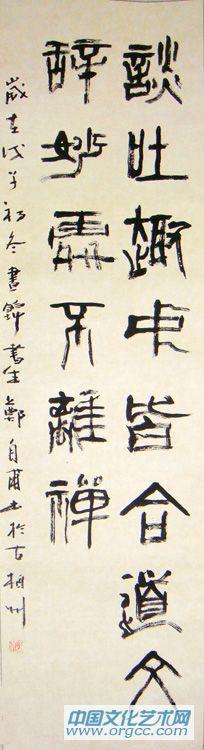 談吐趣中皆合道文
辭妙處不離禪
歲在戊子初冬書生鄭自甫書於古相州
中国文化艺术网
www.orgcc.com